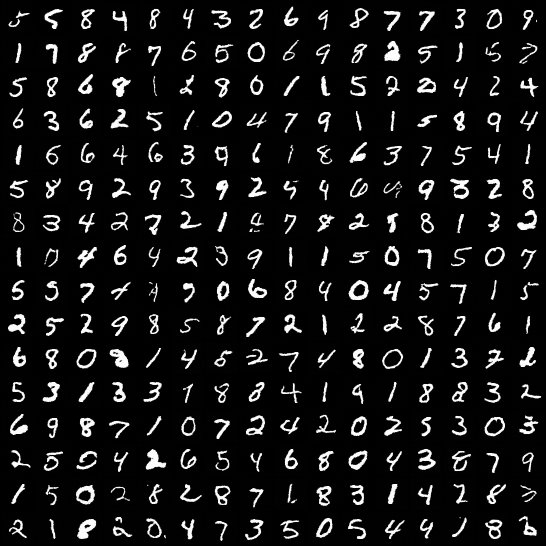 5 5 8 4 8 4 3 2 6 9 8 7 7 3 0 9
1 7 8 8 7 6 5 0 6 9 8 2 5 1 5
5 8 6 8 1 2 8 0 1 1 5 2 2 4 2 4
6 3 6 2 5 1 0 4 7 9 1 1 5 8 9 4
1 6 6 4 6 3 9 6 1 8 6 3 7 5 4 1
5 8 9 2 9 3 9 2 5 4 6 9 3 2 8
8 3 4 2 7 2 1 4 7 8 2 8 8 1 3 2
1 0 4 6 4 2 3 9 1 1 5 0 7 5 0 7
5 5 7 4 9 9 0 6 8 4 0 4 5 7 1 5
2 5 2 9 8 5 8 7 2 1 2 2 8 7 6 1
6 8 0 8 1 4 5 2 7 4 8 0 1 3 7 2
5 3 1 3 3 1 8 8 4 1 9 1 8 8 3 2
6 9 8 7 1 0 7 2 4 2 0 2 5 3 0 3
2 5 0 4 2 6 5 4 6 8 0 4 3 8 7 9
1 5 0 2 8 2 8 7 1 8 3 1 4 2 8
2 1 8 2 0 4 7 3 5 0 5 4 9 1 8 2